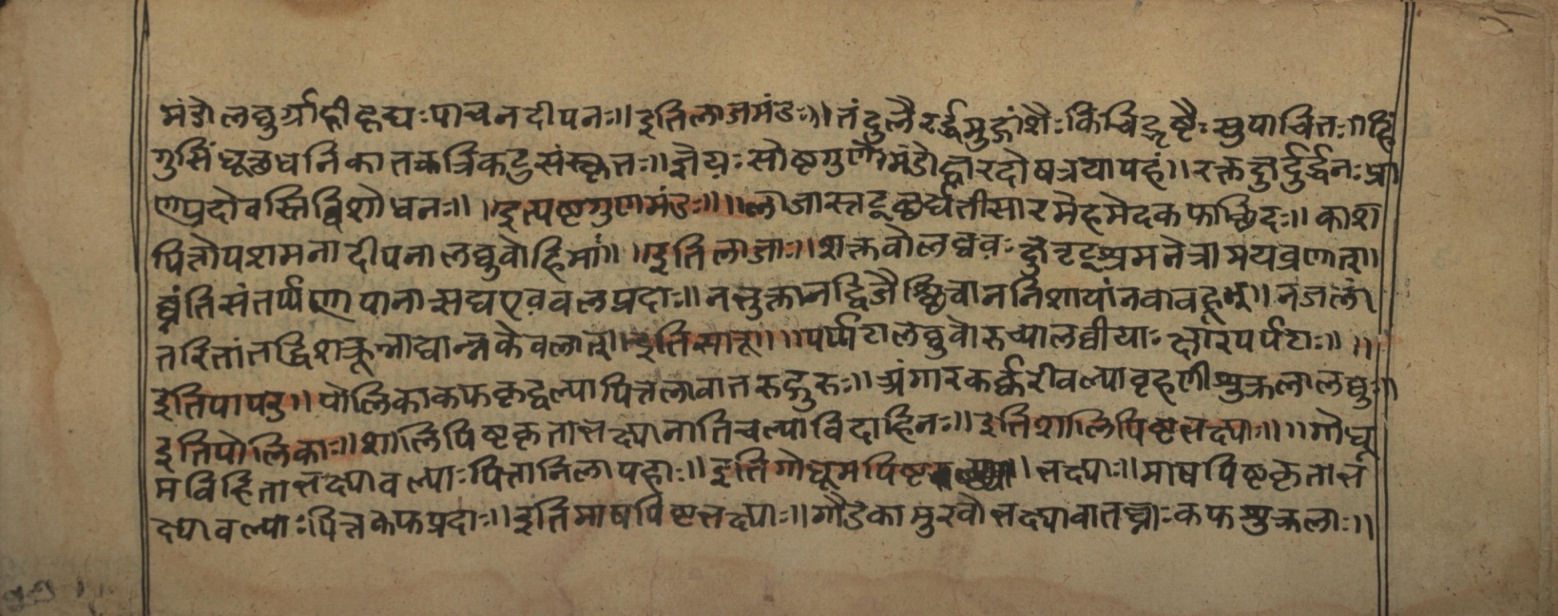 मंडो लघुर्ग्राही हृद्यः पाचन दीपनः॥ इति लाजमंडः॥ तंदुलैरर्द्धमुद्गांशैः किंचिद्भृष्टैः सुपाचितः॥ हिं
गुसिंधूत्थधनिकातक्रत्रिकटुसंस्कृतः॥ ज्ञेयः सोष्टगुणो मंडो ज्वरदोषत्रयापहं॥ रक्तक्षुर्द्वर्द्धनः प्रा
णप्रदो वस्तिविशोधनः॥ ॥इत्यष्टगुणमंडः॥ ॥लाजास्तृट्छर्द्यतीसारमेहमेदकफाच्छिदः॥ काश
पित्तोपशमना दीपना लघुवो हिमां॥ ॥इति लाजाः॥ शक्तवो लघ्ववः क्षुत्तृट्श्रमनेत्रामयव्रणान्॥
घ्नंति संतर्प्पणा पानात्सद्य एव बलप्रदाः॥ न भुक्ता न द्विजैश्छित्वा न निशायां न वा बहून्॥ न जलां
तरितां तद्विशक्तून्नाद्यान्न केवलान्॥ इति सातू॥ ॥पर्प्पटा लघुवो रुच्या लघ्वीयाः क्षारपर्पटाः॥ ॥
इति पापरु॥ पोलिका कफकृद्वल्या पित्तला वातरुद्गुरुः॥ अंगारकर्क्करी वल्या वृहणी शुक्रला लघुः॥
इति पोलिकाः॥ शालिपिष्टकृता भक्ष्या नातिवल्या विदाहिनः॥ इति शालिपिष्टभक्ष्याः॥ ॥गोधू
मविहिता भक्ष्या वल्याः पित्तानिलापहाः॥ इति गोधूमपिष्ट॥ भक्ष्याः॥ माषपिष्टकृता भ
क्ष्या वल्याः पित्तकफप्रदाः॥ इति माषपिष्टभक्ष्याः॥ गौडिका गुरवो भक्ष्या वातघ्नाः कफशुक्रलाः॥